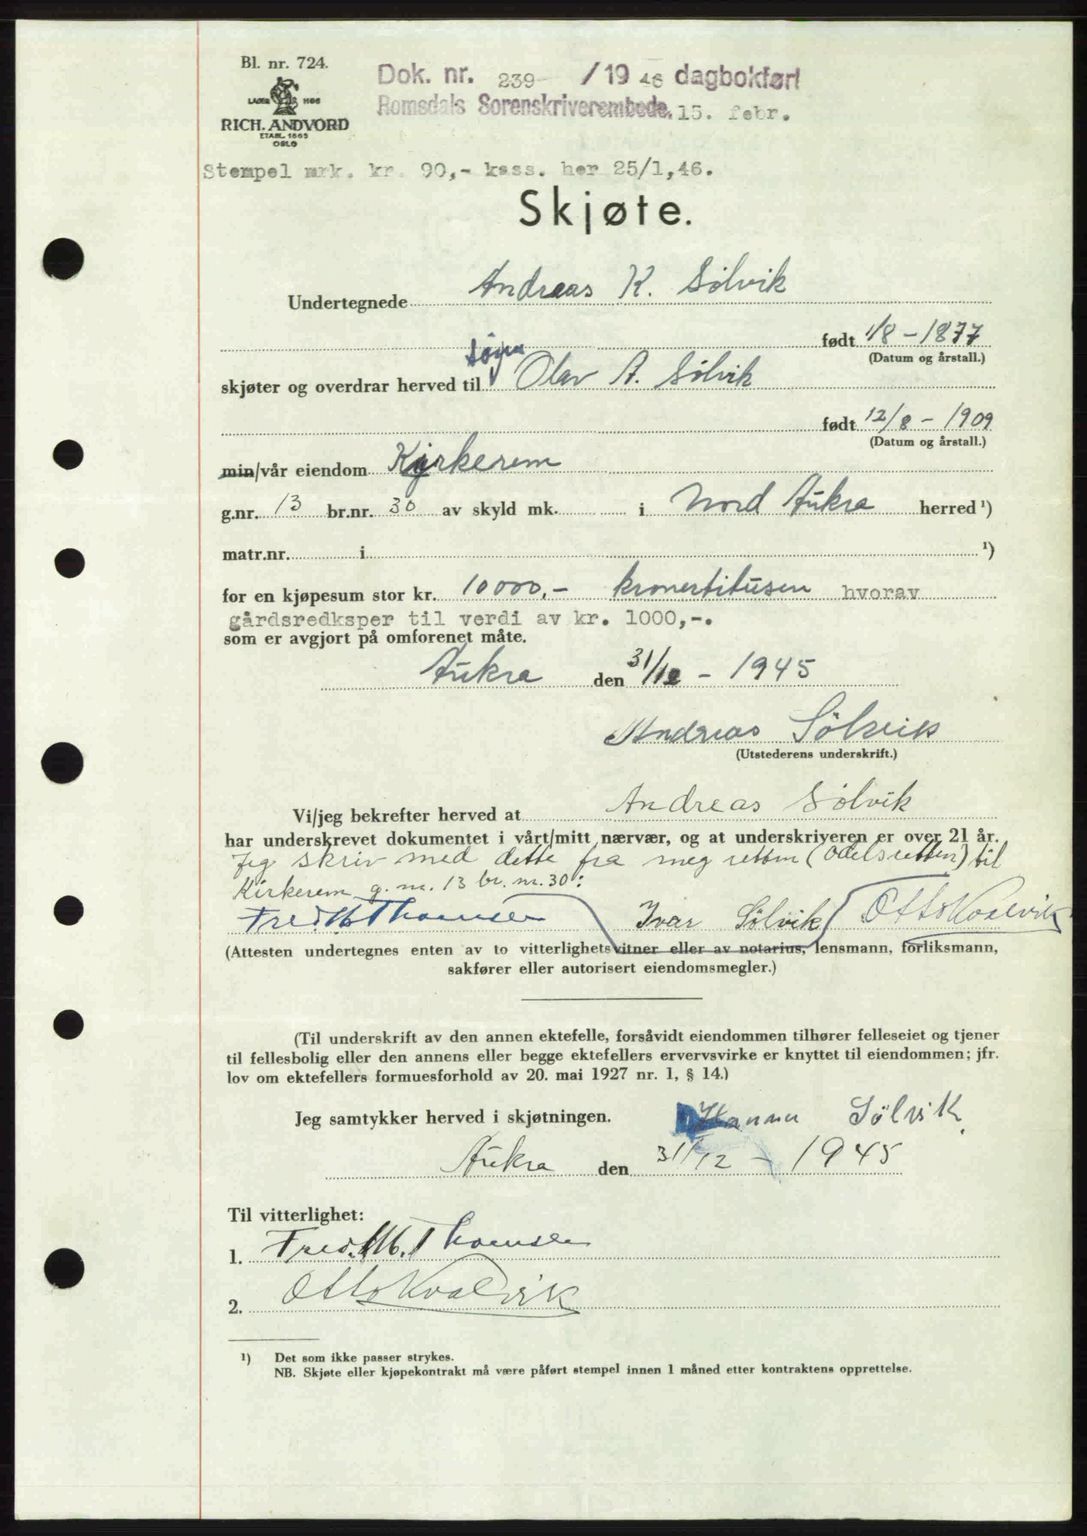 Bl. nr. 724.
LAGER 1186
RICH. ANDVORD
ETABL. 1865
OSLO
Dok. nr. 239 /19 46 dagbokført
Romsdals Sorenskriverembede. 15. febr.
Stempel mrk. kr. 90,- kass. her 25/1,46.
Skjøte.
Undertegnede Andreas K. Sølvik
født 1/8 - 1877
(Datum og årstall.)
skjøter og overdrar herved til Olav A. Sölvik
født 12/8 - 1909
(Datum og årstall.)
min/vår eiendom Kirkerem
g.nr. 13 br.nr. 30 av skyld mk. i Nord Aukra herred ¹)
matr.nr. i ¹)
for en kjøpesum stor kr. 10000,- kronertitusen hvorav
gårdsredksper til verdi av kr. 1000,-.
som er avgjort på omforenet måte.
Aukra den 31/12 - 1945
Andreas Sölvik
(Utstederens underskrift.)
Vi/jeg bekrefter herved at Andreas Sölvik
har underskrevet dokumentet i vårt/mitt nærvær, og at underskriveren er over 21 år.
Jeg skriv med dette fra meg retten (odelsretten) til
Kirkerem g. nr. 13 br. nr. 30:
Fred. M. Thomsen Ivar Sölvik Otto Kvalvik
(Attesten undertegnes enten av to vitterlighetsvitner eller av notarius, lensmann, forliksmann,
sakfører eller autorisert eiendomsmegler.)
(Til underskrift av den annen ektefelle, forsåvidt eiendommen tilhører felleseiet og tjener
til fellesbolig eller den annens eller begge ektefellers ervervsvirke er knyttet til eiendommen; jfr.
lov om ektefellers formuesforhold av 20. mai 1927 nr. 1, § 14.)
Jeg samtykker herved i skjøtningen. Hanna Sölvik
Aukra den 31/12 - 1945
Til vitterlighet:
1. Fred. M. Thomsen
2. Otto Kvalvik
¹) Det som ikke passer strykes.
NB. Skjøte eller kjøpekontrakt må være påført stempel innen 1 måned etter kontraktens opprettelse.